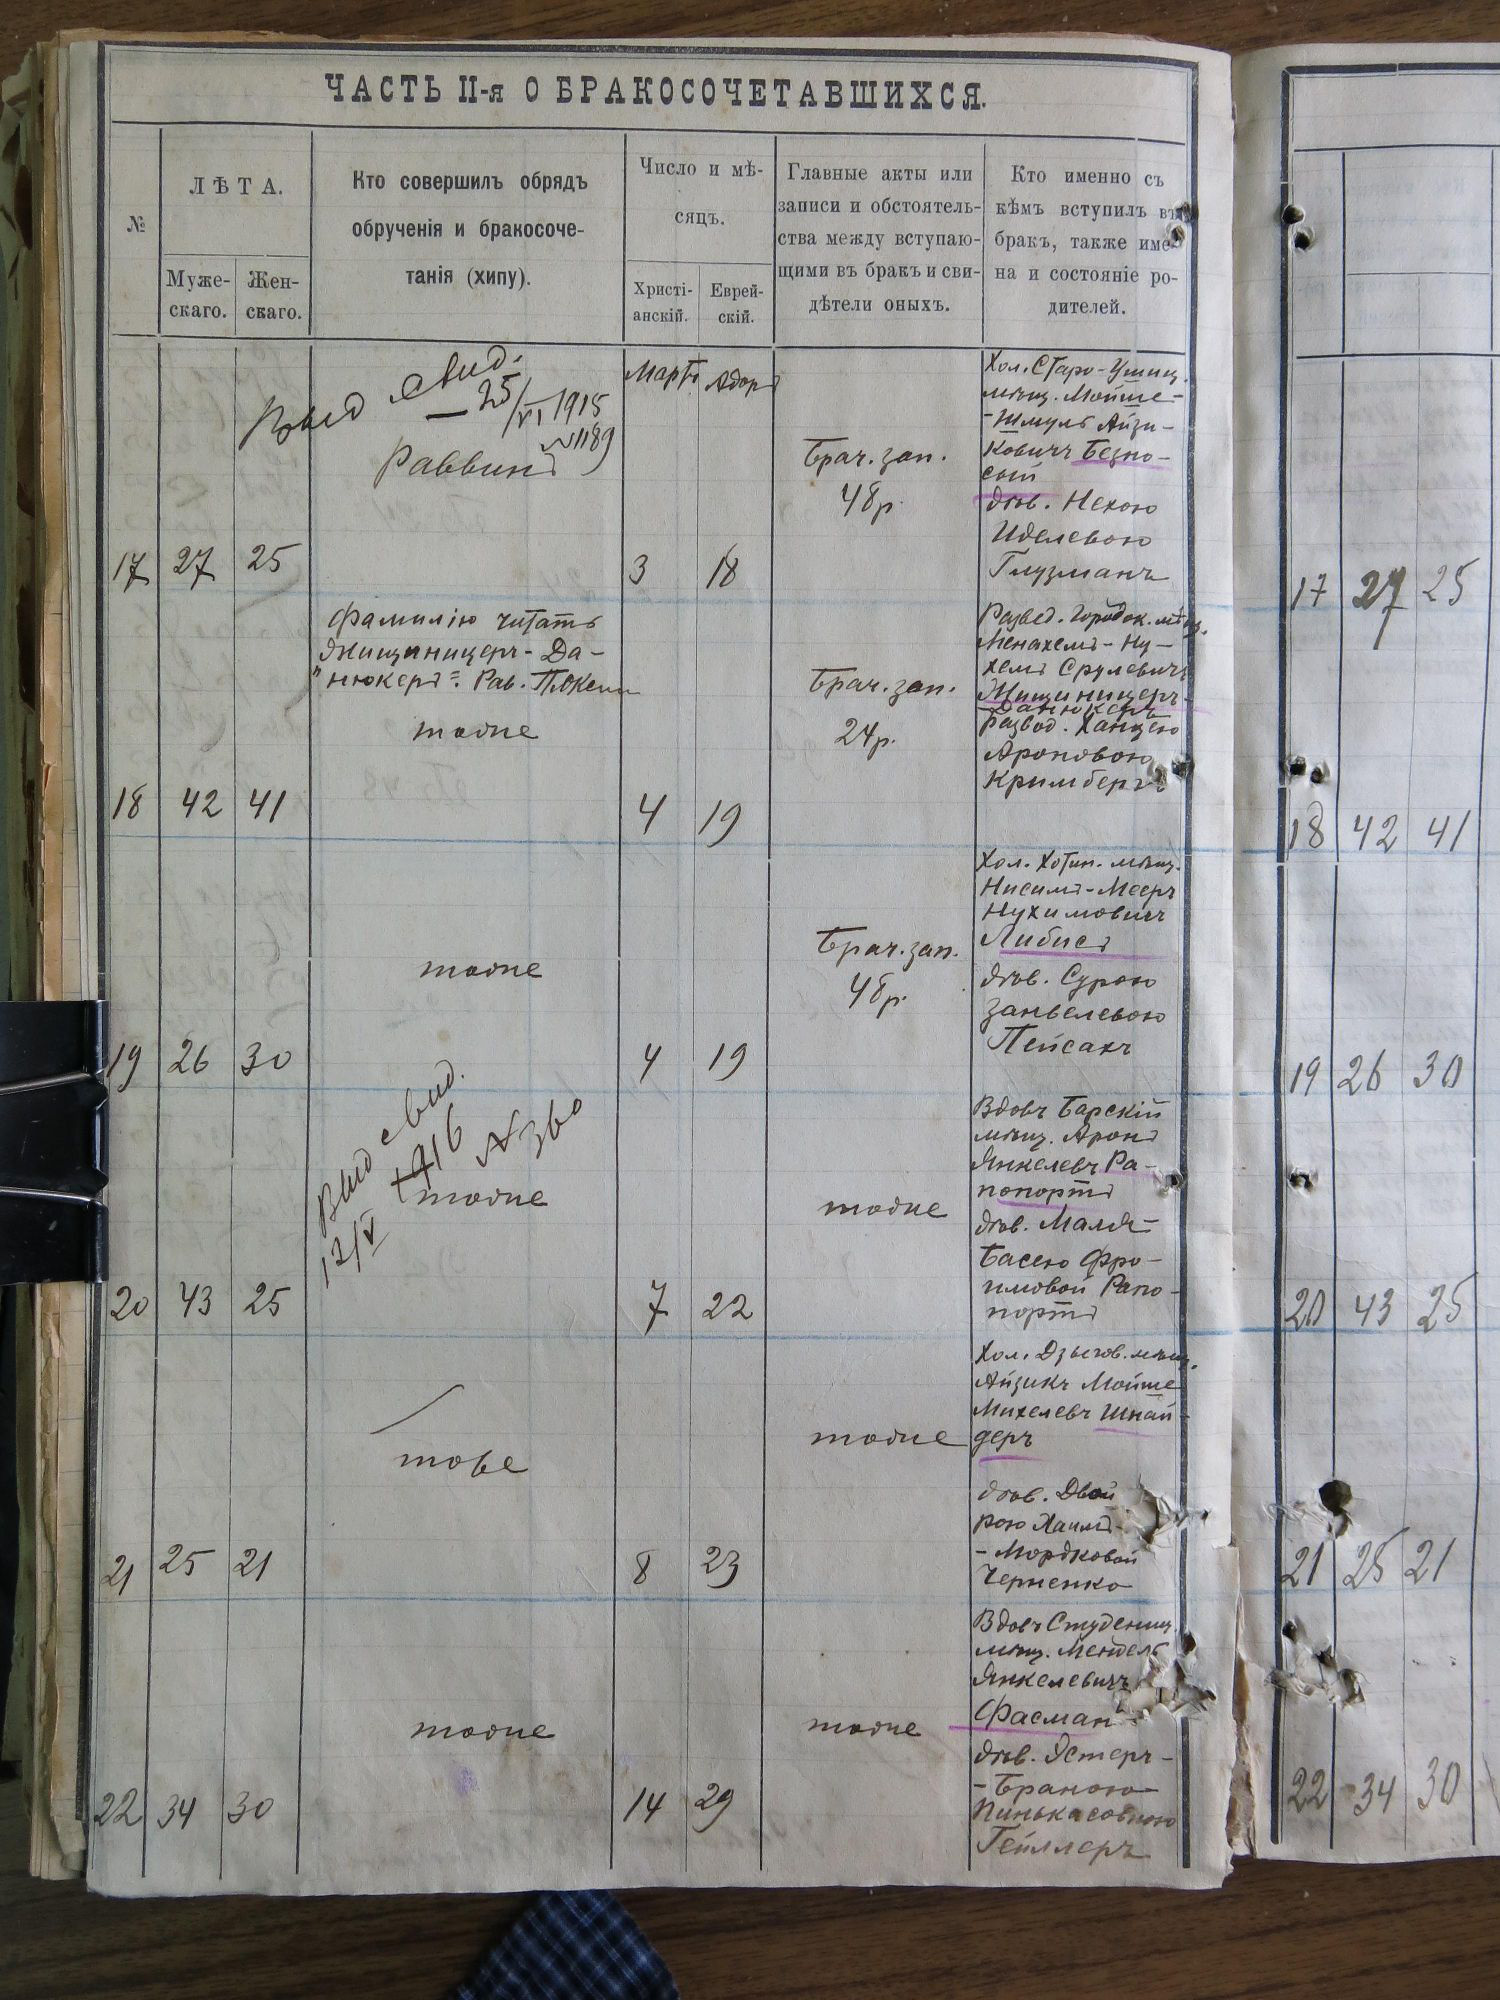 ЧАСТЬ II-я О БРАКОСОЧЕТАВШИХСЯ.
№
ЛѢТА.
Муже-
скаго.
Жен-
скаго.
Кто совершилъ обрядъ
обрученія и бракосоче-
танія (хипу).
Число и мѣ-
сяцъ.
Христі-
анскій.
Еврей-
скій.
Главные акты или
записи и обстоятель-
ства между вступаю-
щими въ бракъ и сви-
дѣтели оныхъ.
Кто именно съ
кѣмъ вступилъ въ
бракъ, также име-
на и состояніе ро-
дителей.
Выд свид.
25/VI 1915
№1189
Раввинъ
Мартъ
Адаръ
Брач. зап.
48 р.
Хол. Старо-Ушиц.
мѣщ. Мойше-
-Шмуль Айзи-
ковичъ Безно-
сый
дѣв. Нехою
Иделевою
Глузманъ
17 27 25 3 18
Фамилію читать
Жищиницеръ-Да-
нюкеръ". Рав.
тоже
Брач. зап.
24 р.
Развед. Городок. мѣщ.
Менахемъ-Ну-
хемъ Срулевичъ
Жищиницеръ-
Данюкеръ
развод. Ханцею
Ароновою
Кримберъ
18 42 41 4 19
тоже
Брач. зап.
48 р.
Хол. Хотин. мѣщ.
Нисимъ-Мееръ
Нухимовичъ
Либисъ
дѣв. Сурою
Занвелевою
Пейсахъ
19 26 30 4 19
Выд свид.
12/V 1916 №360
тоже
тоже
Вдовъ Барскій
мѣщ. Аронъ
Янкелевъ Ра-
попортъ
дѣв. Маля-
Басею Фро-
имовой Рапо-
портъ
20 43 25 7 22
тоже
тоже
Хол. Дзыгов. мѣщ.
Айзикъ Мойше
Михелевъ Шнай-
деръ
дѣв. Двой
рою Хаимъ-
-Мордковой
Черненко
21 25 21 8 23
тоже
тоже
Вдовъ Студениц.
мѣщ. Мендель
Янкелевичъ
Фасман
дѣв. Эстеръ-
-Браною
Пинькасовною
Геллеръ
22 34 30 14 29
17 27 25
18 42 41
19 26 30
20 43 25
21 25 21
22 34 30